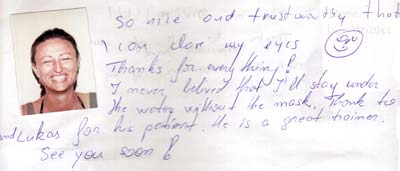 So nice and trustworthy that
I can close my eyes
Thanks for everything!
I never belived that I'll stay under
the water without the mask. Thank too
and Lukas for his patient. He is a great trainer.
See you soon!